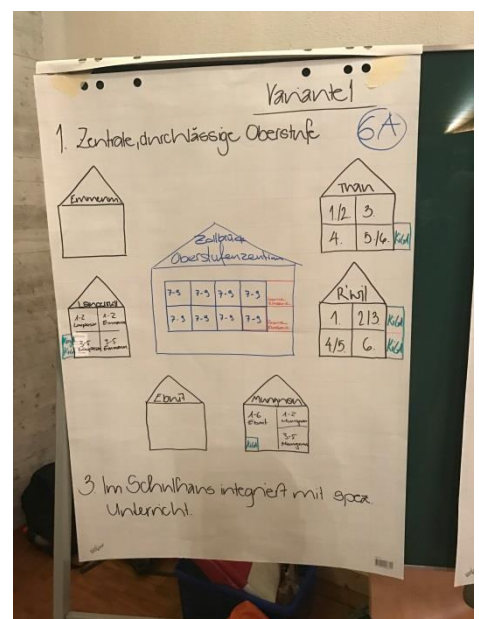 Variante 1
1. Zentrale, durchlässige Oberstufe
6A
Emmenm
Than
1/2 3.
4. 5/6. KiGa
Zollbrück
Oberstufenzentrum
7-9 7-9 7-9 7-9
7-9 7-9 7-9 7-9
Längenb
1-2 1-2
Emmenm
3-5 3-5
Emmenm
R'wil
1. 2/3. KiGa
4/5. 6. KiGa
Ebnit
Mungnau
1-6 1-2
Ebnit Mungnau
3-5
KiGa Mungnau
3. Im Schulhaus integriert mit spez.
Unterricht.